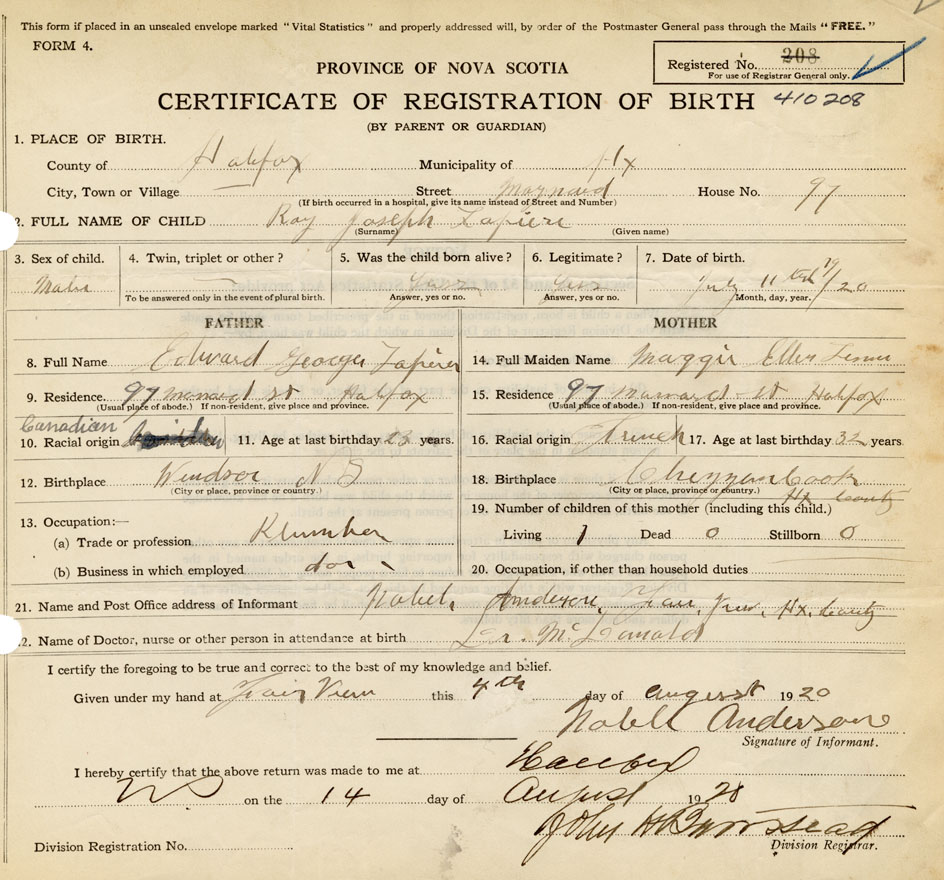 This form if placed in an unsealed envelope marked "Vital Statistics" and properly addressed will, by order of the Postmaster General pass through the Mails "FREE."
FORM 4.
Registered No. 208
For use of Registrar General only.
PROVINCE OF NOVA SCOTIA
CERTIFICATE OF REGISTRATION OF BIRTH 410208
(BY PARENT OR GUARDIAN)
1. PLACE OF BIRTH.
County of Halifax Municipality of Hx
City, Town or Village — Street Maynard House No. 97
(If birth occurred in a hospital, give its name instead of Street and Number)
2. FULL NAME OF CHILD Roy Joseph Lapierre
(Surname) (Given name)
3. Sex of child. 4. Twin, triplet or other? 5. Was the child born alive? 6. Legitimate? 7. Date of birth.
Male July 11 19/20
To be answered only in the event of plural birth. Answer, yes or no. Answer, yes or no. Month, day, year.
FATHER MOTHER
8. Full Name Edward George 14. Full Maiden Name Maggie Ellen
9. Residence 97 St Halifax 15. Residence 97 St Halifax
(Usual place of abode.) If non-resident, give place and province. (Usual place of abode.) If non-resident, give place and province.
Canadian
10. Racial origin 11. Age at last birthday 23 years. 16. Racial origin French 17. Age at last birthday 32 years
12. Birthplace Windsor N S 18. Birthplace
(City or place, province or country.) (City or place, province or country.)
Hx County
13. Occupation:— 19. Number of children of this mother (including this child.)
(a) Trade or profession Living 1 Dead 0 Stillborn 0
(b) Business in which employed 20. Occupation, if other than household duties
21. Name and Post Office address of Informant Anderson, Fair View, Hx. County
22. Name of Doctor, nurse or other person in attendance at birth Dr. McDonald
I certify the foregoing to be true and correct to the best of my knowledge and belief.
Given under my hand at Fair View this 4th day of August 1920
Anderson
Signature of Informant.
I hereby certify that the above return was made to me at Halifax
NS on the 14 day of August 19
John H
Division Registration No. Division Registrar.